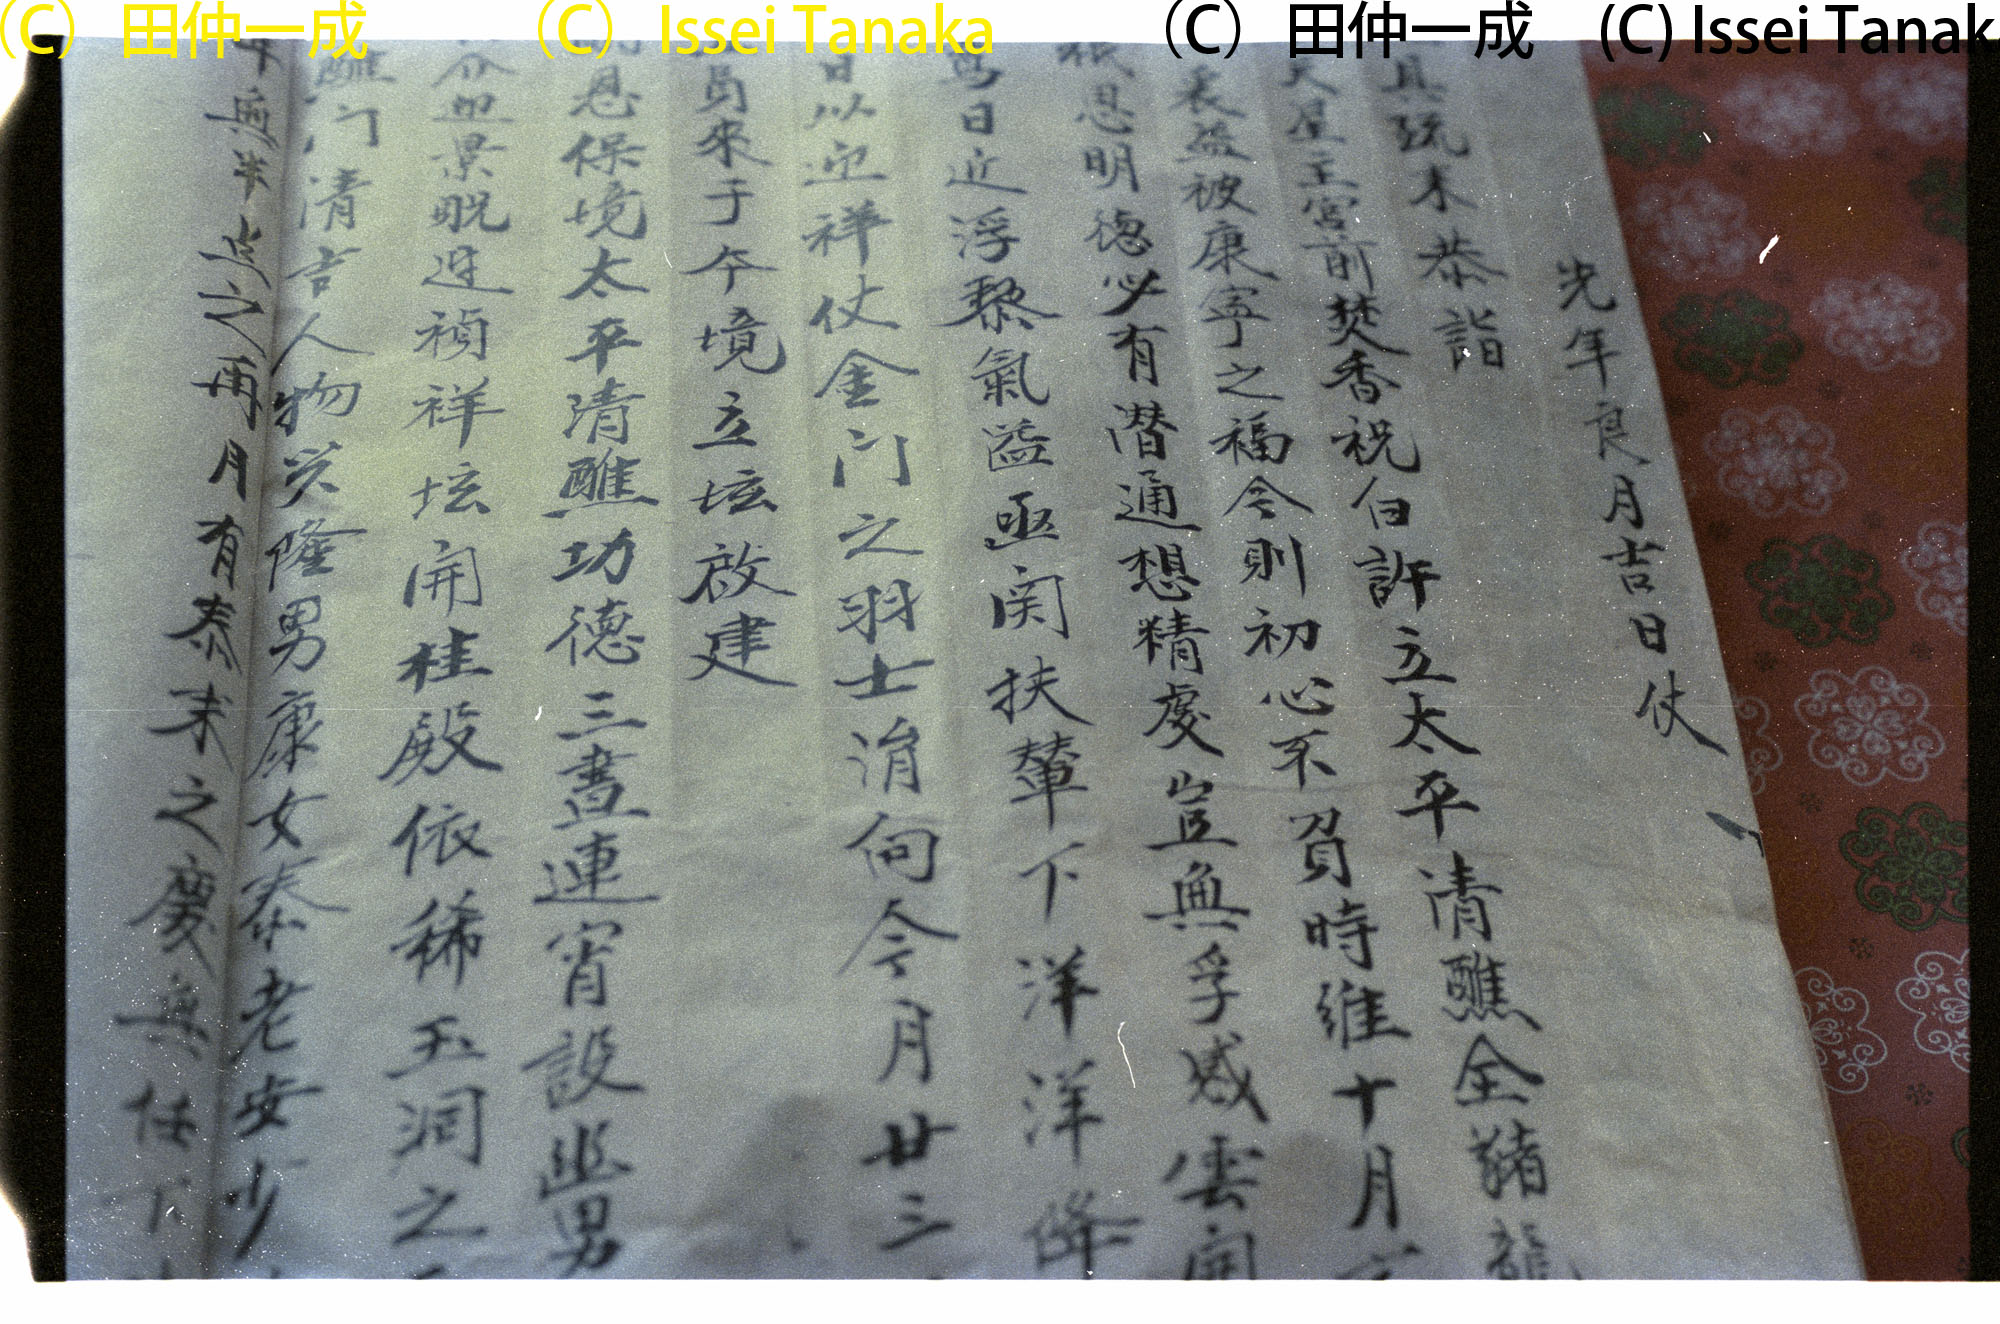 (C) 田仲一成 (C) Issei Tanaka (C) 田仲一成 (C) Issei Tanak
光年良月吉日仗
具疏末恭詣
天星王宮前焚香祝白許立太平清醮全豬龍
衰益被康寧之福今則初心不負時維十月
根恩明德必有潛通想精虔豈無孚感雲開
馬日近浮黎氣益亟闵扶輦下洋洋降
日以迎祥仗金门之羽士涓向今月廿三
員來于本境立坛啟建
恩保境太平清醮功德三晝連宵設幽男
景貺迓禎祥坛開桂殿依稀玉洞之
醮门清吉人物兴隆男康女泰老安少
無半点之再月有泰来之慶無任